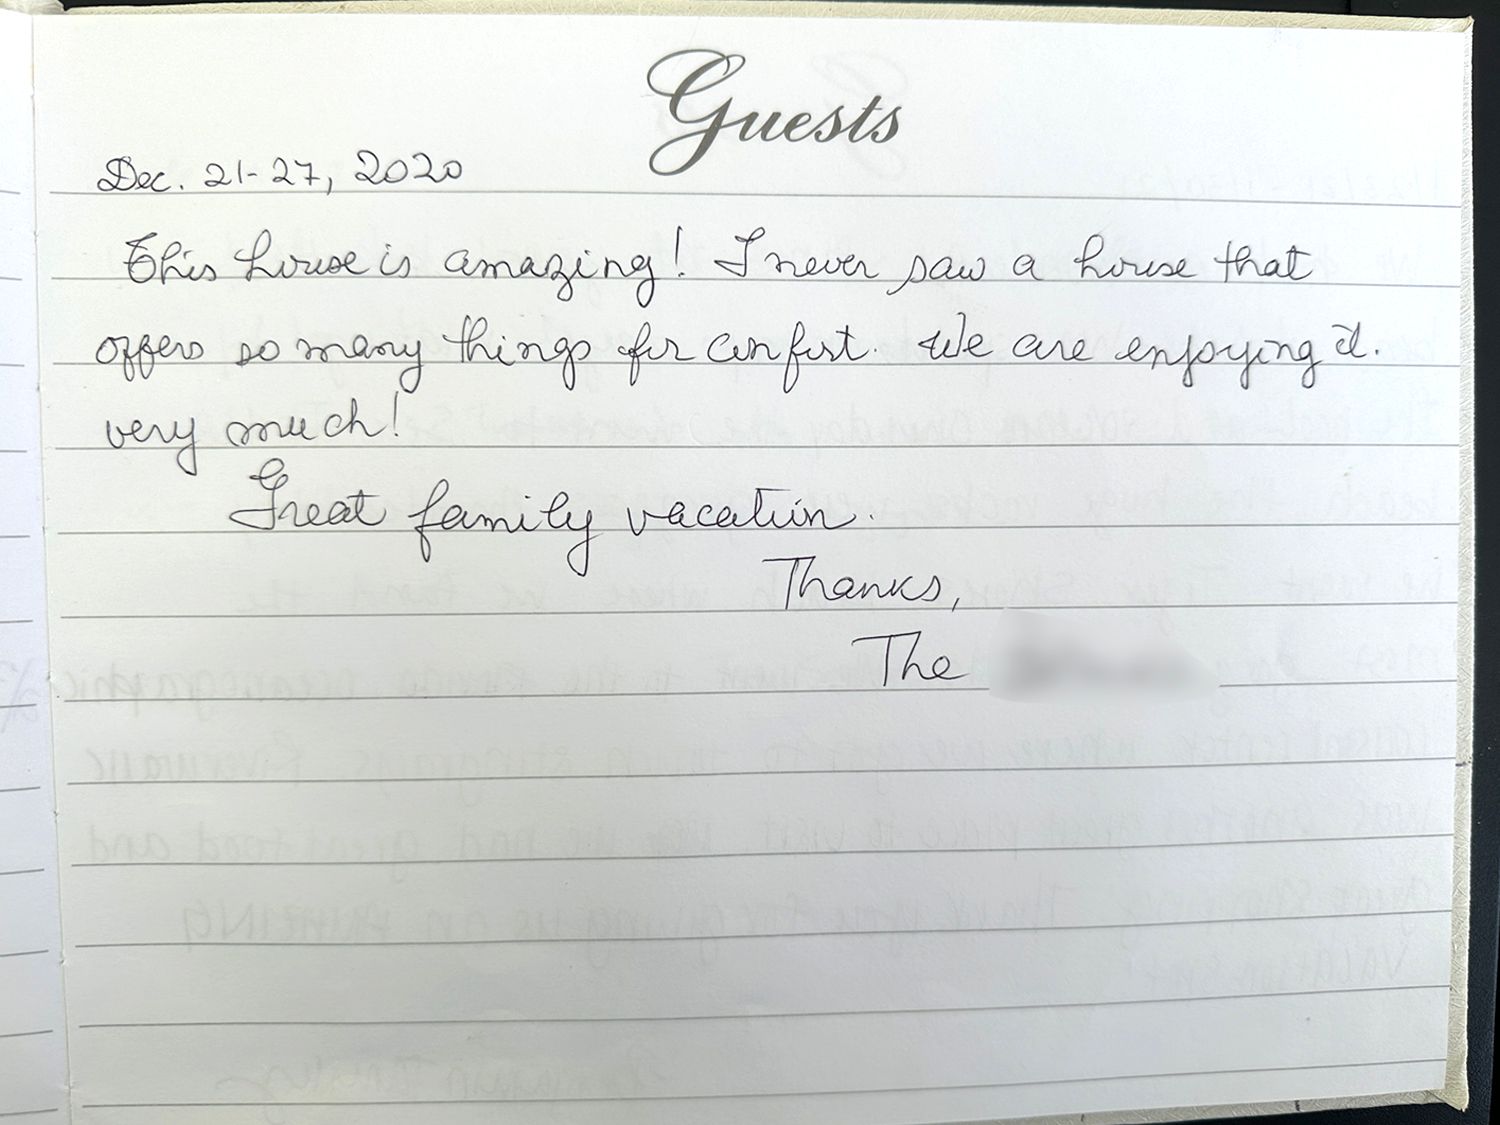 Guests
Dec. 21-27, 2020
This house is amazing! I never saw a house that
offers so many things for confort. We are enjoying it.
very much!
Great family vacation.
Thanks,
The